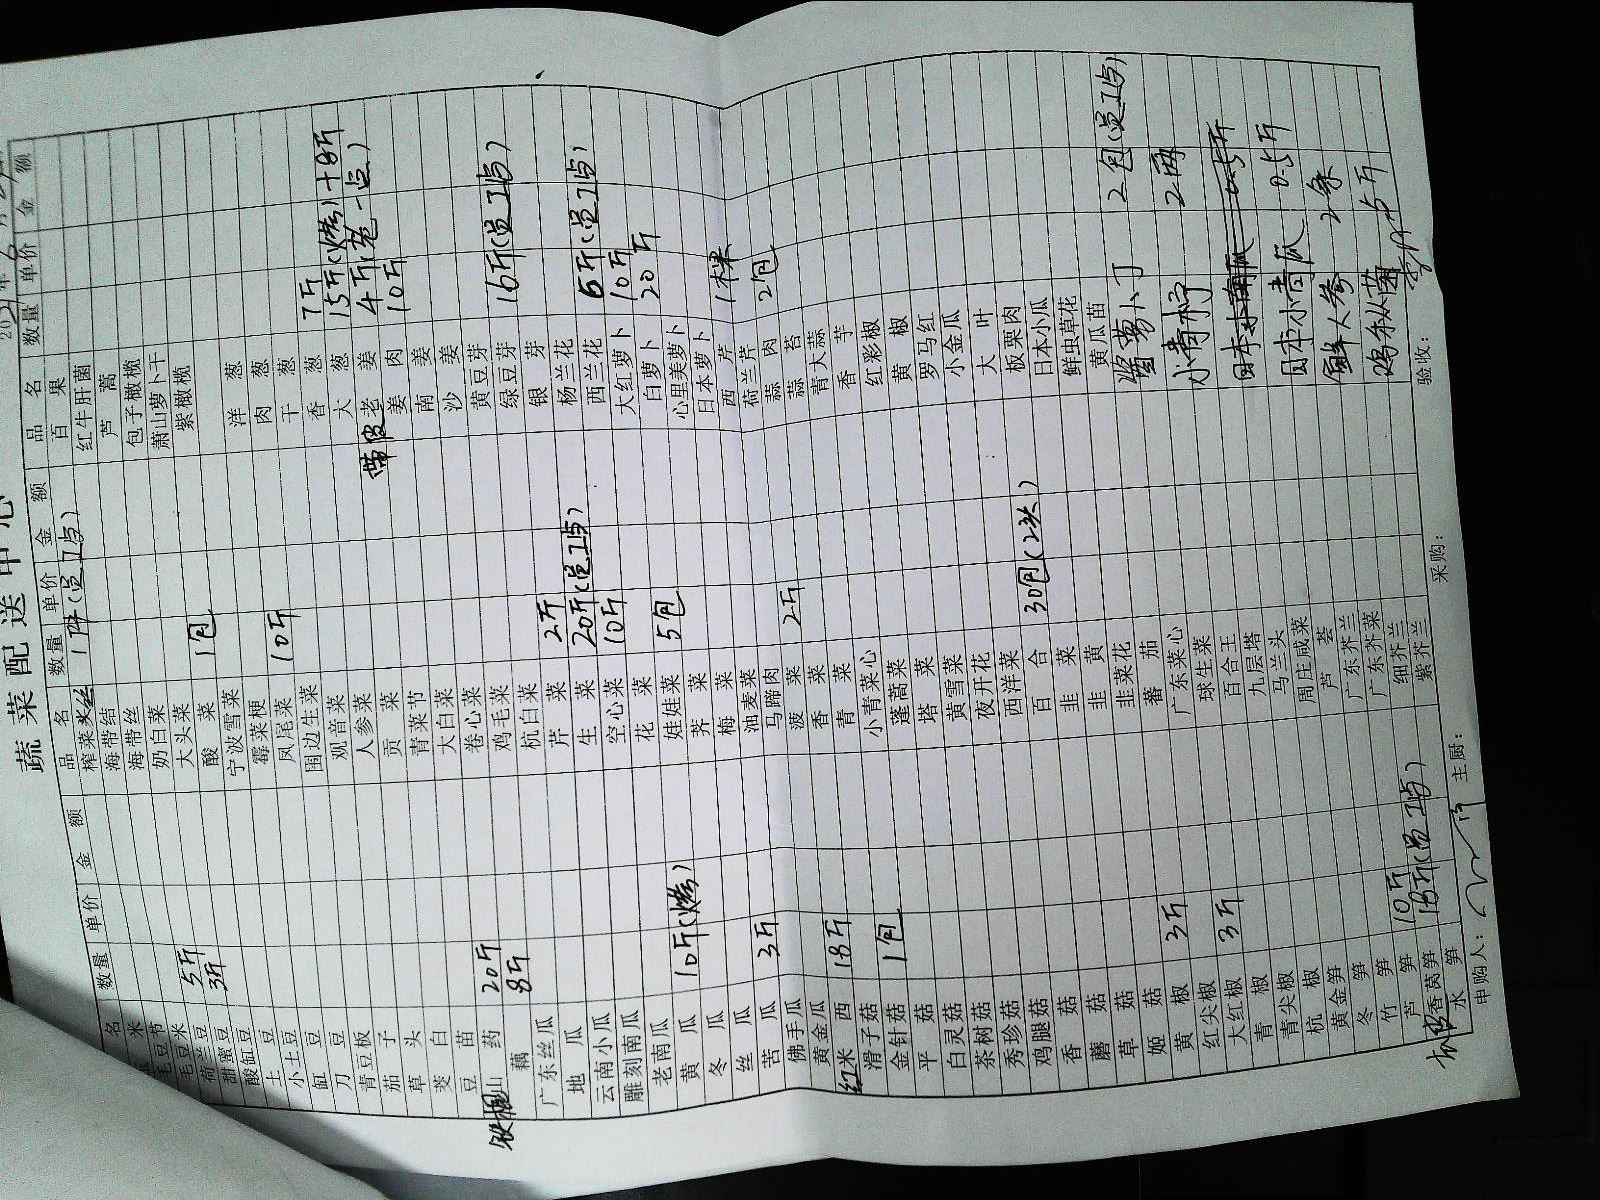 蔬菜配送中心
名 数量 单价 金额
米
毛豆节
毛豆米
荷兰豆 5斤
甜蜜豆 3斤
酸缸豆
土豆
小土豆
缸豆
刀豆
青豆板
茄子
草头
茭白
豆苗
铁棍山药 20斤
藕 8斤
广东丝瓜
地瓜
云南小瓜
雕刻南瓜
老南瓜
黄瓜 10斤(烤)
冬瓜
丝瓜
苦瓜 3斤
佛手瓜
黄金瓜
红米西 18斤
滑子菇
金针菇 1包
平菇
白灵菇
茶树菇
秀珍菇
鸡腿菇
香菇
蘑菇
草菇
姬菇
黄椒 3斤
红尖椒
大红椒 3斤
青椒
青尖椒
杭椒
黄金笋
冬笋
竹笋
芦笋 10斤
香莴笋 18斤(员工点)
水笋
品名 数量 单价 金额
榨菜丝 1件(员工点)
海带结
海带丝
奶白菜
大头菜
酸菜 1包
宁波雪菜
霉菜梗
凤尾菜 10斤
围边生菜
观音菜
人参菜
贡菜
青菜节
大白菜
卷心菜
鸡毛菜
杭白菜
芹菜 2斤
生菜 20斤(员工点)
空心菜 10斤
花菜
娃娃菜 5包
荠菜
梅菜
油麦菜
马蹄肉
菠菜 2斤
香菜
青菜
小青菜心
蓬蒿菜
塔菜
黄雪菜
夜开花
西洋菜
百合 30包(2头)
韭菜
韭黄
韭菜花
番茄
广东菜心
球生菜
百合王
九层塔
马兰头
周庄咸菜
芦荟
广东芥兰
广东芥菜
细芥兰
紫芥兰
品名 数量 单价 金额
百果
红牛肝菌
芦蒿
包子橄榄
萧山萝卜干
紫橄榄
洋葱
肉葱
干葱
香葱 7斤
大葱 15斤(烤)+8斤
带皮老姜 4斤(老一点)
姜肉 10斤
南姜
沙姜
黄豆芽
绿豆芽 16斤(员工点)
银芽
杨兰花
西兰花 6斤(员工点)
大红萝卜 10斤
白萝卜 20斤
心里美萝卜
日本萝卜
西芹 1棵
荷兰芹
蒜肉 2包
蒜苔
青大蒜
香芋
红彩椒
黄椒
罗马红
小金瓜
大叶
板栗肉
日本小瓜
鲜虫草花
黄瓜苗
酱萝卜丁 2包(员工点)
小青柠 2两
日本小青瓜 0.5斤
鲜人参 2条
鸡枞菌 5斤
申购人： 主厨： 采购： 验收：